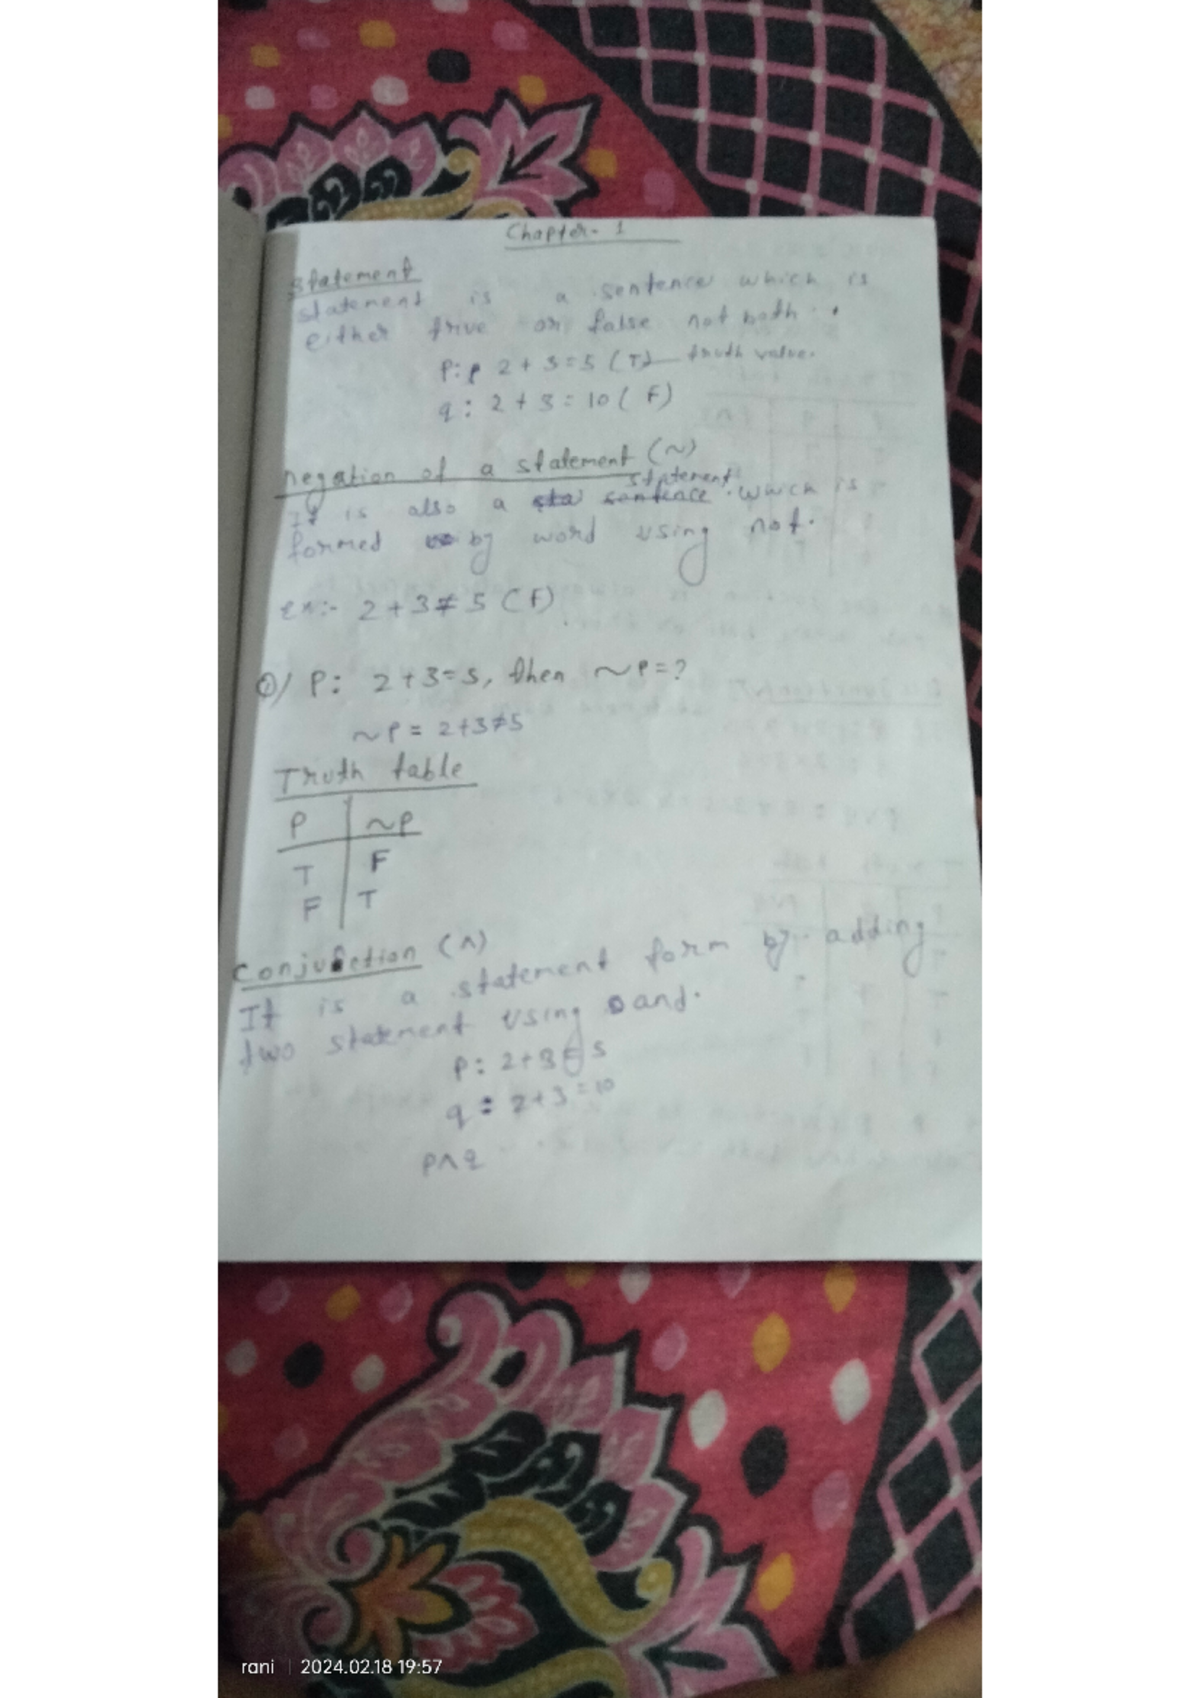 Chapter- 1
statement
statement is a sentence which is
either trive or false not both.
P: p 2+3=5 (T) truth value.
q: 2+3=10 (F)
negation of a statement (~)
statement
It is also a sta sentence which is
formed by word using not.
ex:- 2+3≠5 (F)
Q) P: 2+3=5, then ~P=?
~P = 2+3≠5
Truth table
P ~P
T F
F T
conjunction (∧)
It is a statement form by adding
two statement using and.
P: 2+3=5
q: 2+3=10
P∧q
rani | 2024.02.18 19:57